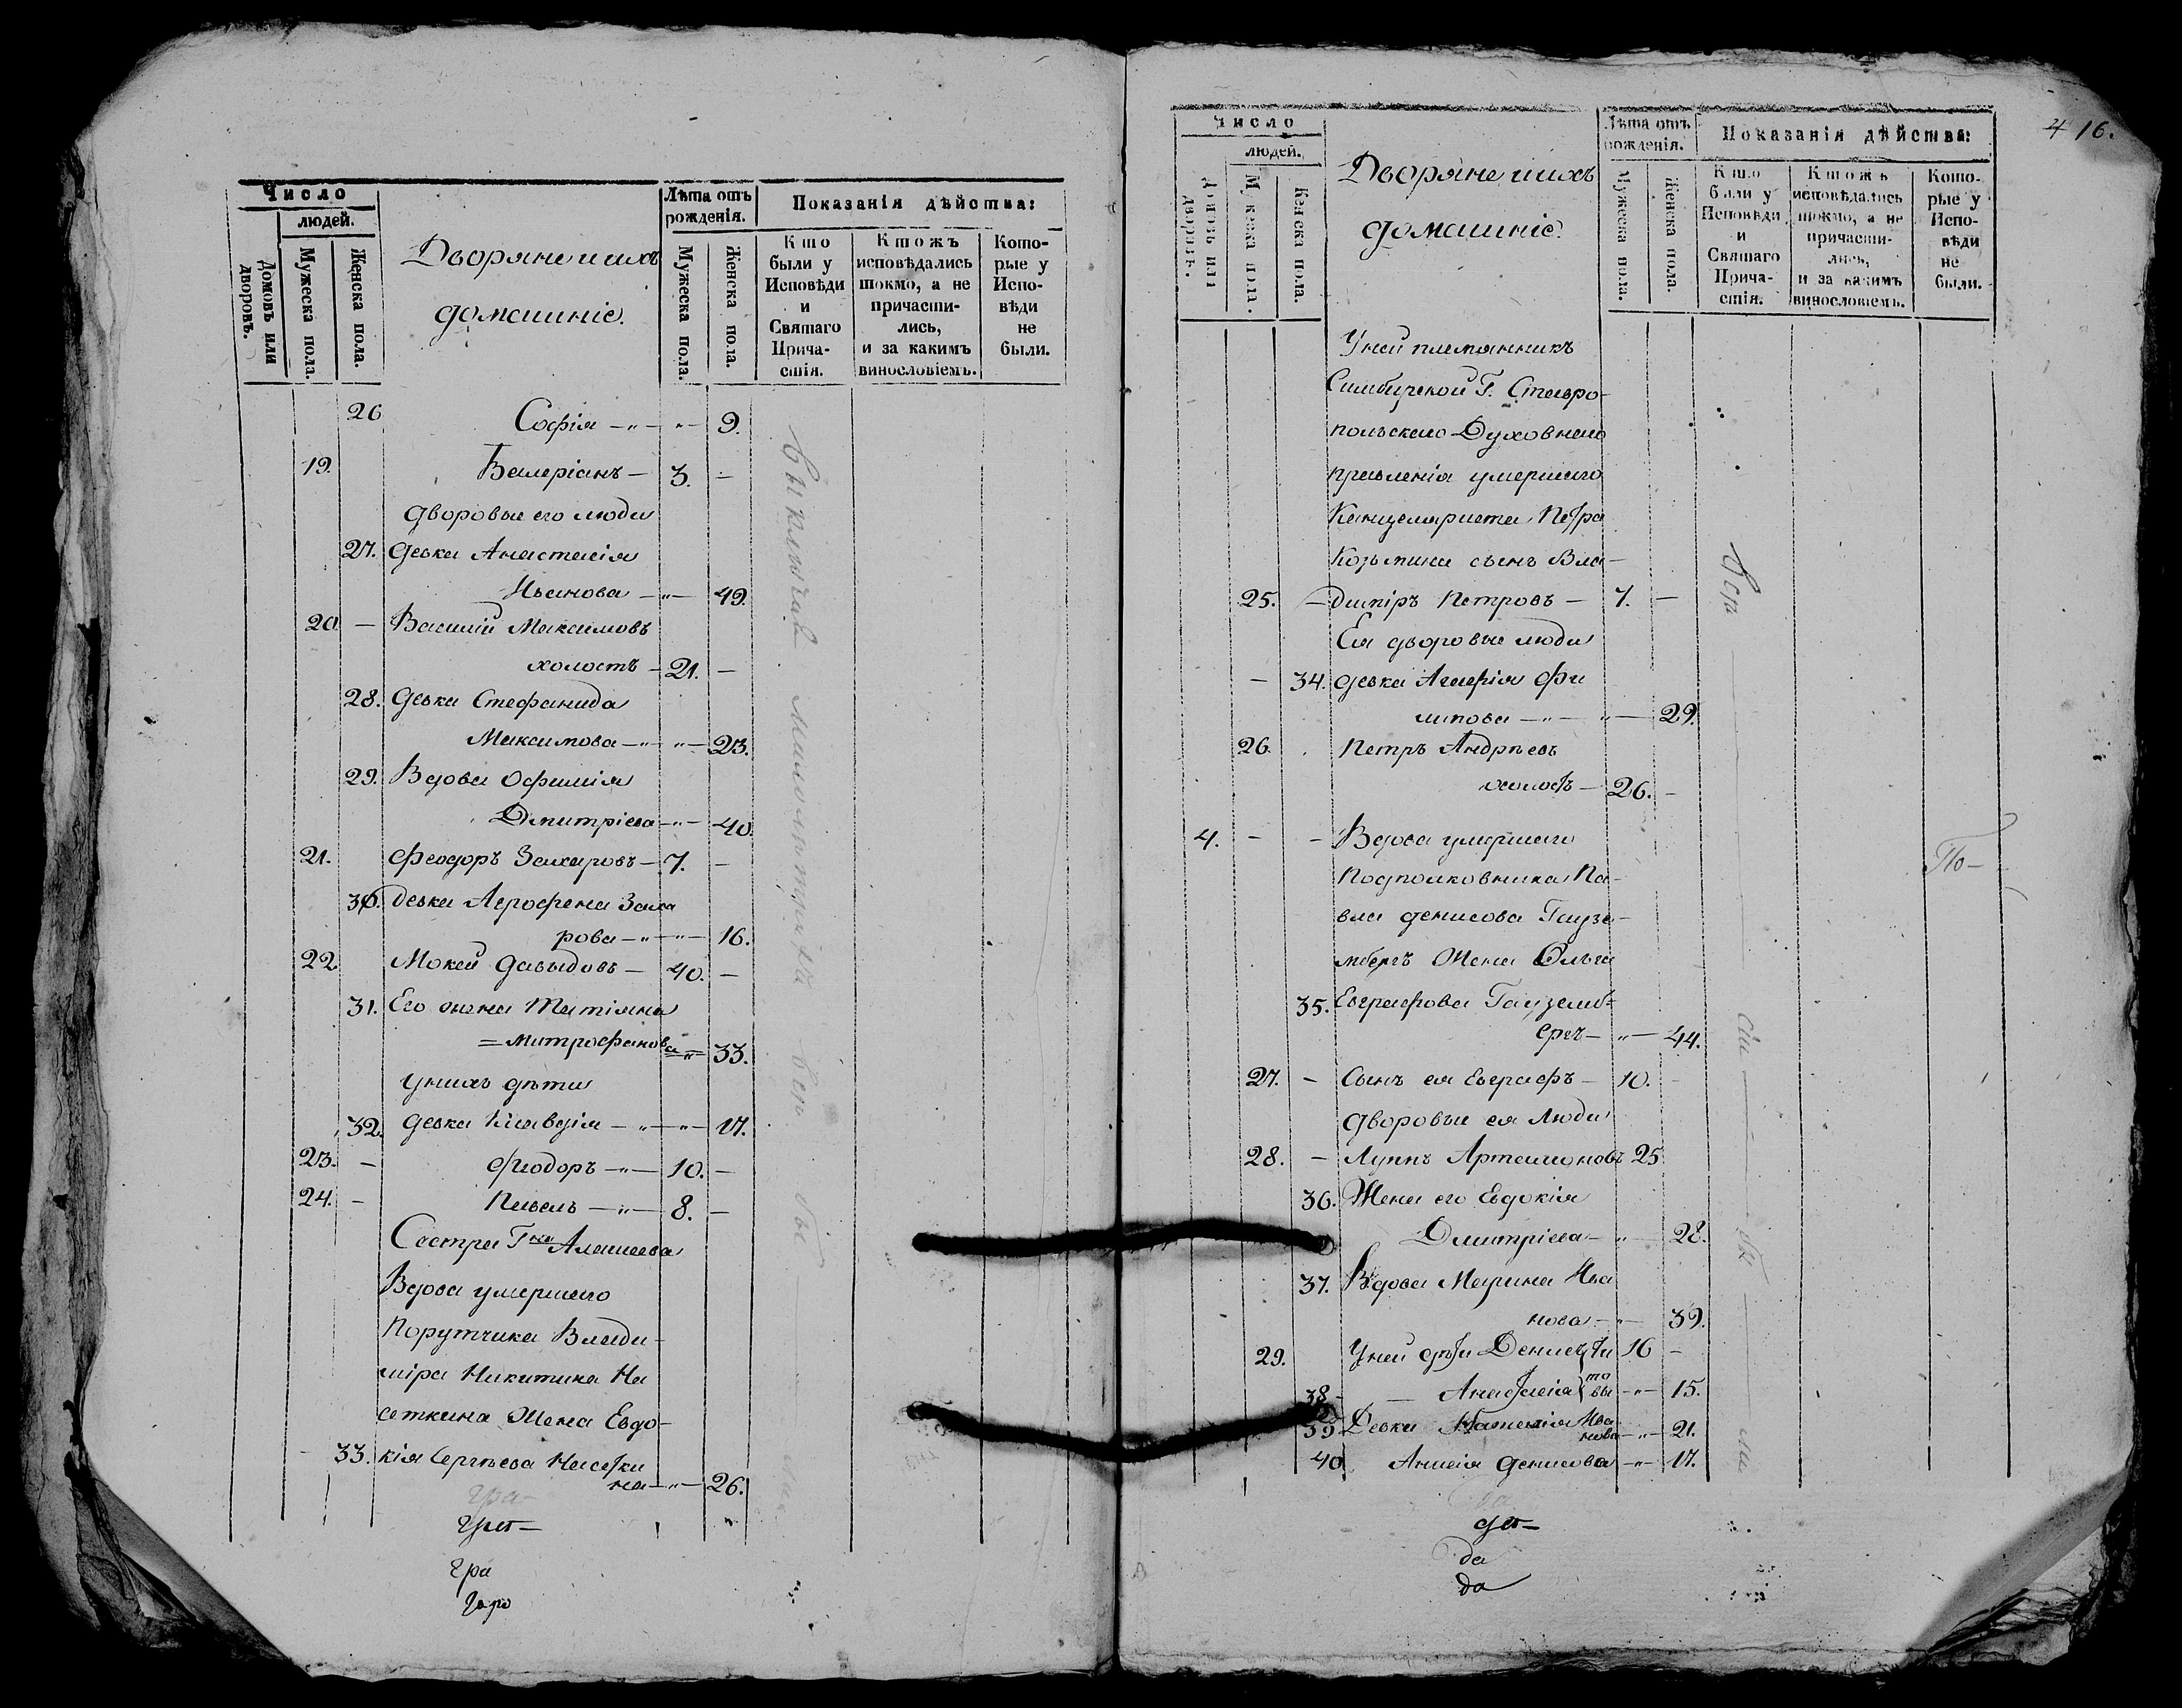 Число
людей.
Домовъ или дворовъ.
Мужеска пола.
Женска пола.
Дворяне и ихъ
домашніе.
Лѣта отъ рожденія.
Мужеска пола.
Женска пола.
Показанія дѣйства:
Кто были у Исповѣди и Святаго Причастія.
Ктожъ исповѣдались токмо, а не причастились, и за какимъ винословіемъ.
Которые у Исповѣди не были.
26 Софія —„— „— 9.
19. Валеріанъ — 3. —
дворовые его люди
27. девка Анастасія
Иванова —„— 49.
20 — Василий Максимовъ
холостъ — 21. —
28. девка Стефанида
Максимова —„— „— 23.
29. Вдова Офимія
Дмитріева —„— 40.
21. Феодоръ Захаровъ — 7. —
30. девка Агрофена Заха
рова —„— „— 16.
22 Мокей Давыдовъ — 40. —
31. Его жена Татіяна
= Митрофанова „— 33.
у нихъ дѣти
32. девка Клавдія —„— „— 17.
23. — Феодоръ —„— 10. —
24. — Павелъ —„— 8. —
Сестра Гна Алашеева
Вдова умершаго
Порутчика Влади-
мира Никитина На
сеткина Жена Евдо-
33. кія Сергѣева Насетки
на —„— 26.
Число
людей.
Домовъ или дворовъ.
Мужеска пола.
Женска пола.
Дворяне и ихъ
домашніе.
Лѣта отъ рожденія.
Мужеска пола.
Женска пола.
Показанія дѣйства:
Кто были у Исповѣди и Святаго Причастія.
Ктожъ исповѣдались токмо, а не причастились, и за какимъ винословіемъ.
Которые у Исповѣди не были.
416.
У ней племянникъ
Симбирской Г. Ставро-
польскаго Духовнаго
правленія умершаго
Канцеляриста Петра
Козьмина сынъ Вла-
25. — димиръ Петровъ — 7. —
Ея дворовые люди
— 34. девка Агафія Фи
липова —„— „— 29.
26. Петръ Андрѣевъ
холостъ — 26. —
4. — — Вдова умершаго
Подполковника Па-
вла Денисова Гаузе-
мбергъ Жена Ольга
35. Евграфова Гауземб=
ергъ — „— 44.
27. — Сынъ ея Евграфъ — 10. —
дворовые ея люди
28. — Луппъ Артамоновъ 25
36. Жена его Евдокія
Дмитріева — „ — 28.
37. Вдова Марина Ива
нова — „— 39.
29. У ней дѣти Денисъ 16 —
38 — Анастасія —„— 15.
39 Девка Наталія Ива
нова —„— 21.
40 Анисія Денисова —„— 17.
По—
да
да